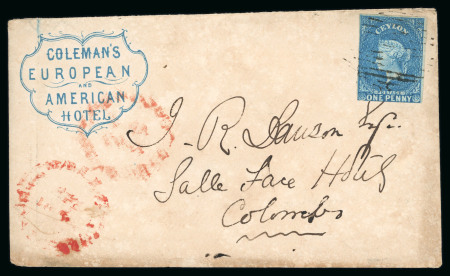 COLEMAN'S
EUROPEAN
AND
AMERICAN
HOTEL
CEYLON
POSTAGE
ONE PENNY
J. R. Dawson Esqr.
Galle Face Hotel
Colombo